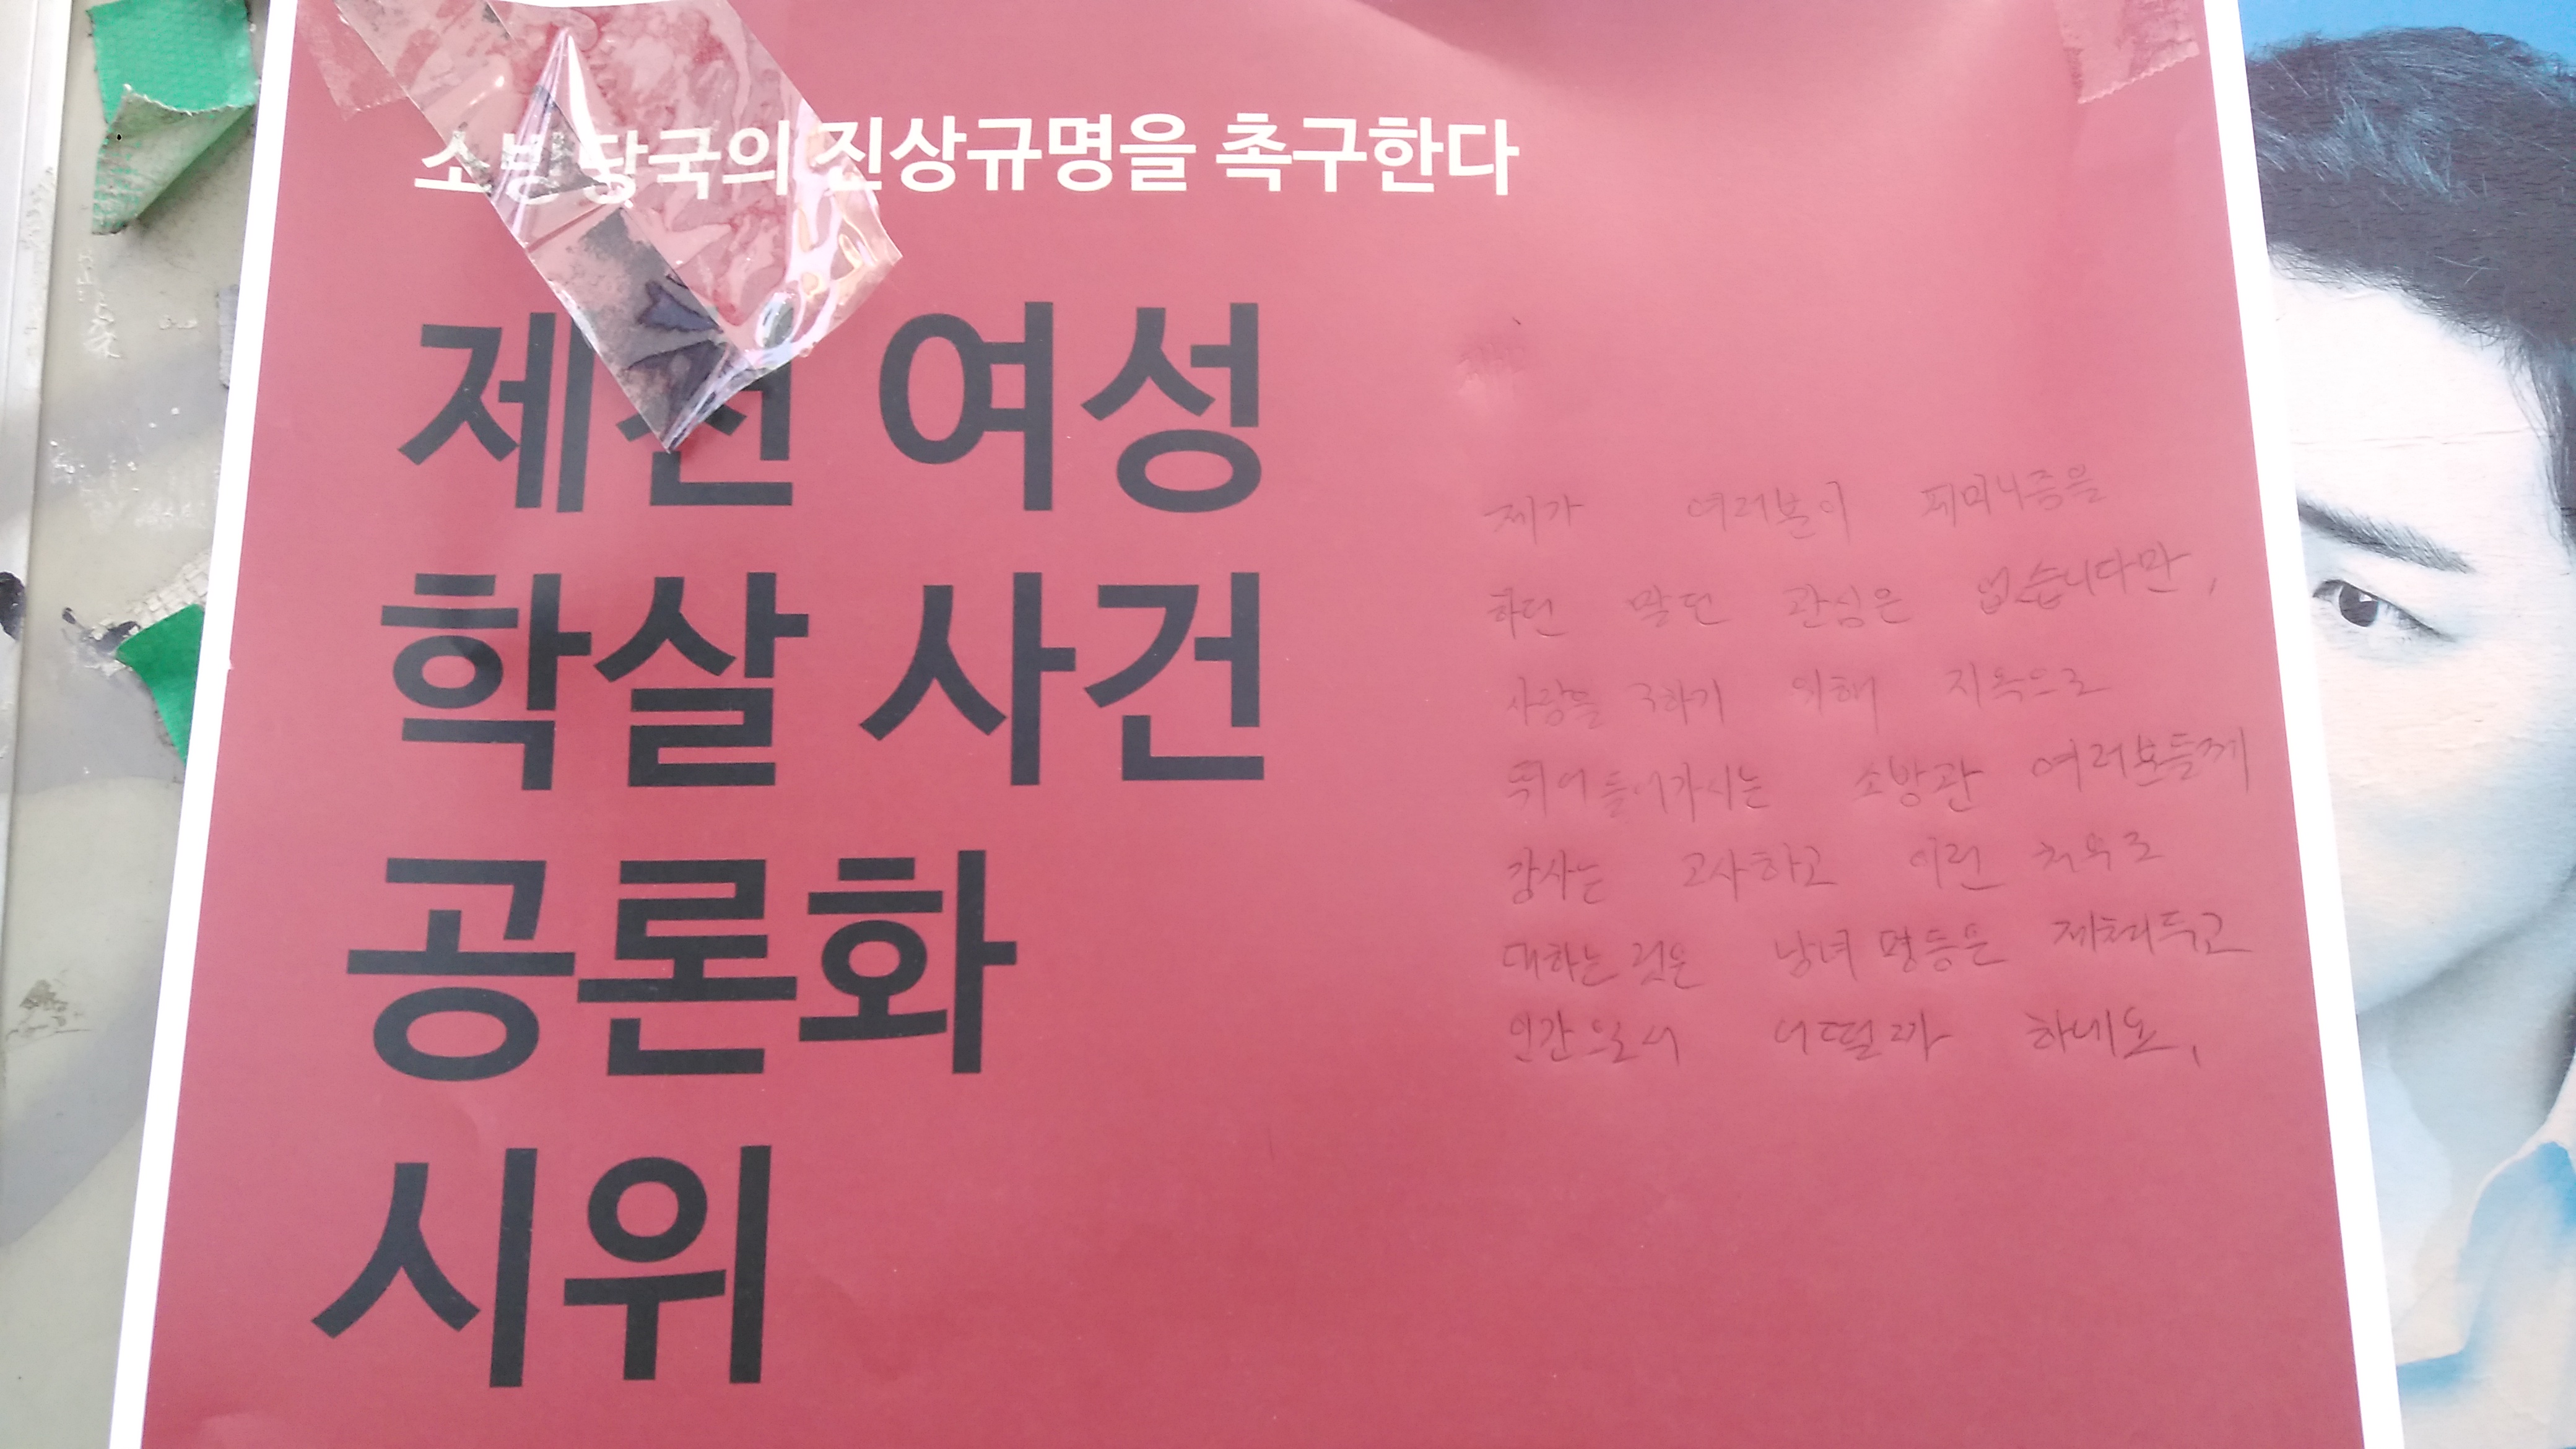 소방당국의 진상규명을 촉구한다
제천 여성
학살 사건
공론화
시위
제가 여러분이 페미니즘을
하던 말던 관심은 없습니다만,
사람을 구하기 위해 지옥으로
뛰어들어가시는 소방관 여러분들께
감사는 고사하고 이런 처우로
대하는 것은 남녀평등은 제쳐두고
인간으로서 어떨까 하네요.